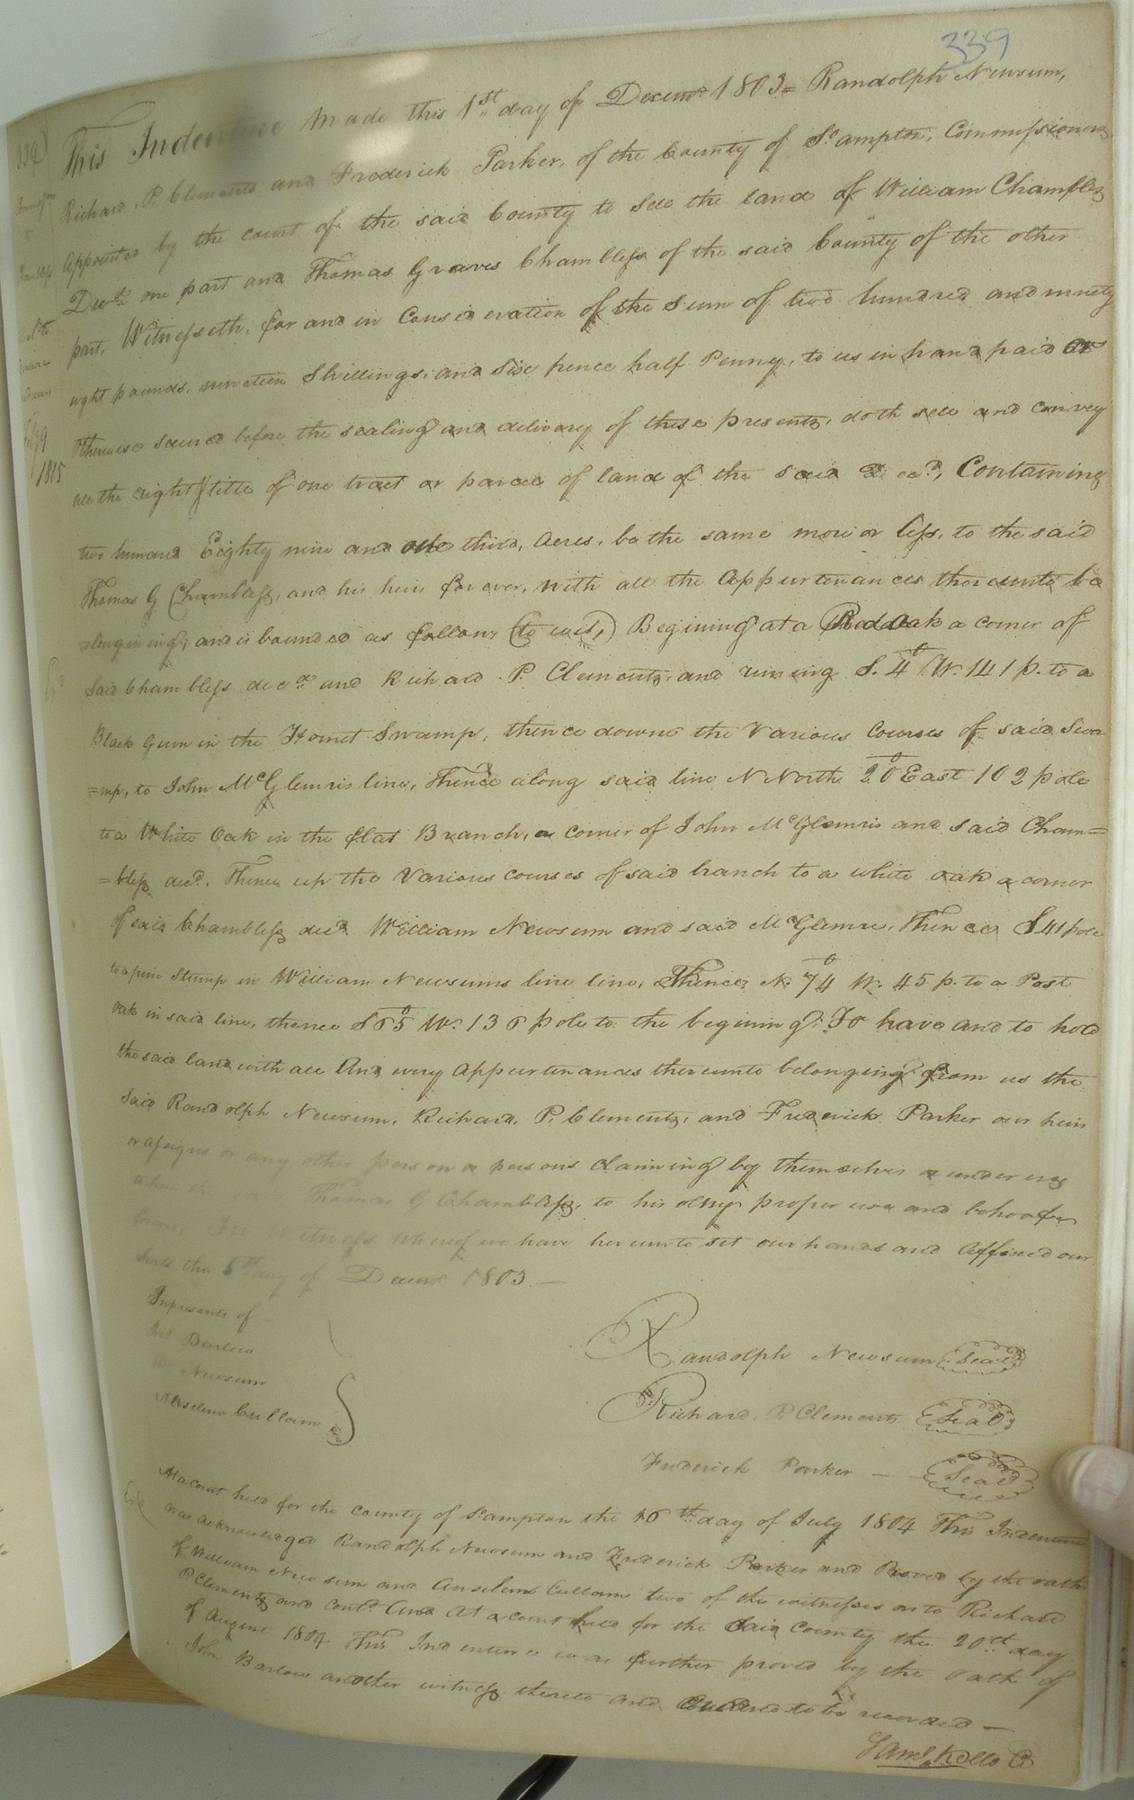 339
This Indenture Made this 1st day of Decemr 1803 = Randolph Newsum,
Richard P Clements and Frederick Parker, of the County of So.ampton, Commissioners
Appointed by the court of the said County to Sell the land of William Chambless
Decd. one part and Thomas Graves Chambless of the said County of the other
part, Witnesseth, for and in Consideration of the Sum of two hundred and ninety
eight pounds, nineteen Shillings, and Six pence half Penny, to us in hand paid or
otherwise secured before the sealing and delivery of these presents, doth sell and convey
all the right & title of one tract or parcel of land of the said Decd, Containing
two hundred Eighty nine and one third, Acres, be the same more or less, to the said
Thomas G Chambless, and his heirs for ever, with all the Appurtenances thereunto be
=longining, and is bounded as follows (to wit,) Begining at a Red Oak a corner of
Said Chambless decd and Richard P. Clements, and runing S. 4° W. 141 p. to a
Black Gum in the Hornet Swamp, thence down the Various Courses of said Swa
=mp, to John McGlemris line, Thence along said line N North 20° East 102 pole
to a White Oak in the flat Branch, a corner of John McGlemris and said Cham=
=bless decd. Thence up the Various courses of said branch to a white oak a corner
of said Chambless decd William Newsum and said McGlemre, Thence S 41 pole
to a pine Stump in William Newsums line line, Thence N. 74° W. 45 p. to a Post
oak in said line, thence S 65° W. 136 pole to the begining. To have and to hold
the said land with all And every Appurtenances thereunto belonging from us the
Said Randolph Newsum, Richard, P. Clements, and Frederick Parker our heirs
or assigns or any other person or persons claiming by themselves or under us
Thomas G Chambless, to his only proper use and behoof for
Witness Whereof we have hereunto set our hands and Affixed our
Seals the day of Decemr 1803 —
In presents of
Jno Barlow
Newsum
Anselem Cullam
Randolph Newsum (Seal)
Richard, P. Clements (Seal)
Frederick Parker — (Seal)
At a court held for the County of So.ampton the 16th day of July 1804 This Indenture
was acknowledged Randolph Newsum and Frederick Parker and Proved by the oath
of William Newsum and Anselem Cullam two of the witnesses as to Richard
P Clements and contd. And At a court held for the said County the 20th day
of August 1804 This Indenture was further proved by the oath of
John Barlow another witness thereto and Ordered to be recorded —
Saml. Kello C